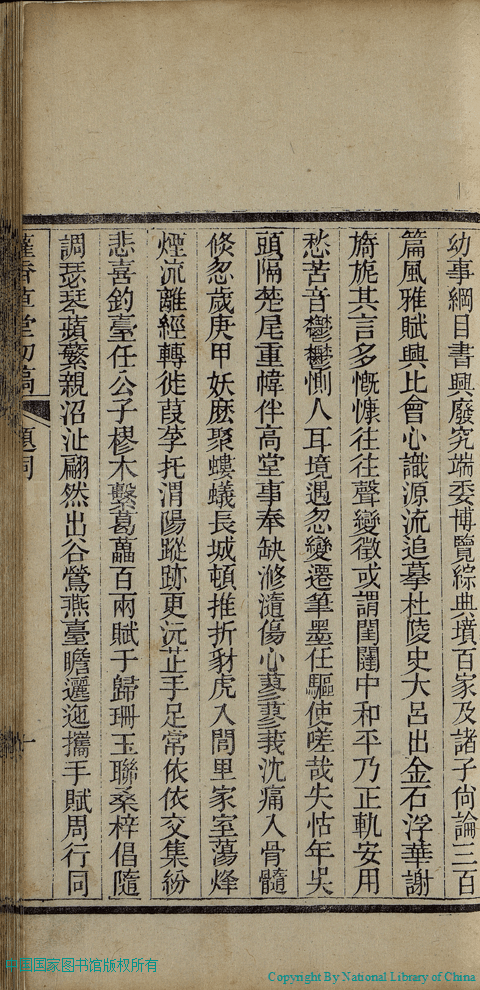 幼事綱目書興廢究端委博覽綜典墳百家及諸子尙論三百
篇風雅賦興比會心識源流追摹杜陵史大呂出金石浮華謝
旖旎其言多慨慷往往聲變徵或謂閨闥中和平乃正軌安用
愁苦音鬱鬱惻人耳境遇忽變遷筆墨任驅使嗟哉失怙年吳
頭隔楚尾重幃伴高堂事奉缺滫瀡傷心蓼蓼莪沈痛入骨髓
倐忽歲庚甲妖麽聚螻蟻長城頓推折豺虎入閭里家室蕩烽
煙流離經轉徙葭莩托渭陽蹤跡更沅芷手足常依依交集紛
悲喜釣臺任公子樛木繫葛藟百兩賦于歸珊玉聯桑梓倡隨
調瑟琴蘋蘩親沼沚翩然出谷鶯燕臺瞻邐迤攜手賦周行同
草堂初稿 題詞 一
中国国家图书馆版权所有
Copyright By National Library of China